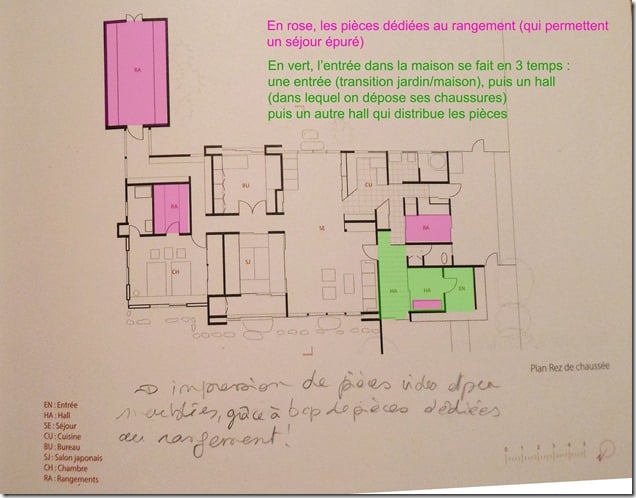 En rose, les pièces dédiées au rangement (qui permettent
un séjour épuré)
En vert, l'entrée dans la maison se fait en 3 temps :
une entrée (transition jardin/maison), puis un hall
(dans lequel on dépose ses chaussures)
puis un autre hall qui distribue les pièces
RA
BU
CU
RA
SE
RA
SJ
CH
HA
HA
EN
Plan Rez de chaussée
impression de pièces vides et peu
meublées, grâce à bcp de pièces dédiées
au rangement !
EN : Entrée
HA : Hall
SE : Séjour
CU : Cuisine
BU : Bureau
SJ : Salon japonais
CH : Chambre
RA : Rangements